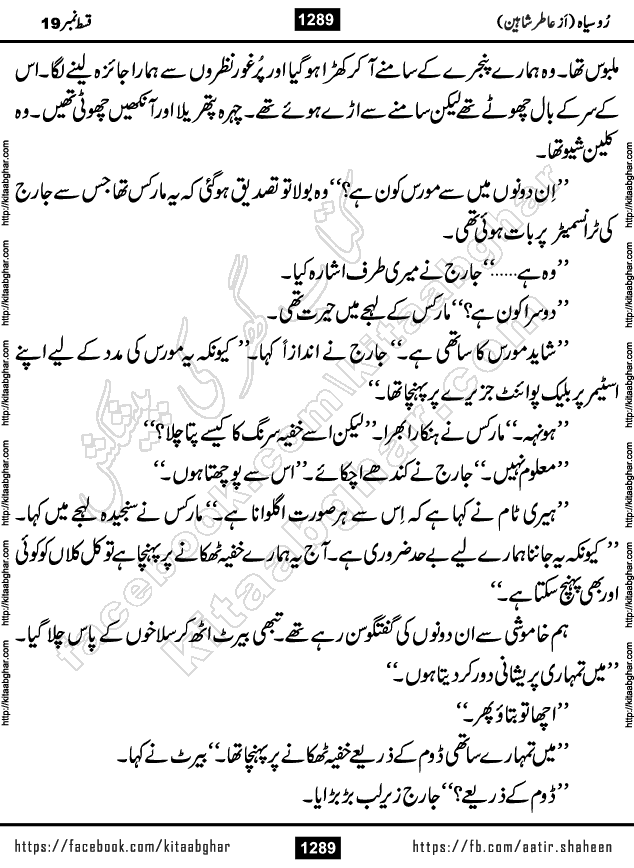 رُوسیاہ (از عاطر شاہین)
1289
قسط نمبر 19
ملبوس تھا۔ وہ ہمارے پنجرے کے سامنے آ کر کھڑا ہو گیا اور پُرغور نظروں سے ہمارا جائزہ لینے لگا۔ اس
کے سر کے بال چھوٹے تھے لیکن سامنے سے اڑے ہوئے تھے۔ چہرہ پتھریلا اور آنکھیں چھوٹی تھیں۔ وہ
کلین شیو تھا۔
’’اِن دونوں میں سے مورس کون ہے؟‘‘ وہ بولا تو تصدیق ہو گئی کہ یہ مارکس تھا جس سے جارج
کی ٹرانسمیٹر پر بات ہوئی تھی۔
’’وہ ہے......‘‘ جارج نے میری طرف اشارہ کیا۔
’’دوسرا کون ہے؟‘‘ مارکس کے لہجے میں حیرت تھی۔
’’شاید مورس کا ساتھی ہے۔‘‘ جارج نے اندازاً کہا۔’’ کیونکہ یہ مورس کی مدد کے لیے اپنے
اسٹیمر پر بلیک پوائنٹ جزیرے پر پہنچا تھا۔‘‘
’’ہونہہ۔‘‘ مارکس نے ہنکارا بھرا۔’’لیکن اسے خفیہ سرنگ کا کیسے پتا چلا؟‘‘
’’معلوم نہیں۔‘‘ جارج نے کندھے اچکائے۔’’اس سے پوچھتا ہوں۔‘‘
’’ہیری ٹام نے کہا ہے کہ اِس سے ہر صورت اگلوانا ہے۔‘‘ مارکس نے سنجیدہ لہجے میں کہا۔
’’کیونکہ یہ جاننا ہمارے لیے بے حد ضروری ہے۔ آج یہ ہمارے خفیہ ٹھکانے پر پہنچا ہے تو کل کلاں کو کوئی
اور بھی پہنچ سکتا ہے۔‘‘
ہم خاموشی سے ان دونوں کی گفتگو سن رہے تھے۔ تبھی بیرٹ اٹھ کر سلاخوں کے پاس چلا گیا۔
’’میں تمہاری پریشانی دور کر دیتا ہوں۔‘‘
’’اچھا تو بتاؤ پھر۔‘‘
’’میں تمہارے ساتھی ڈوم کے ذریعے خفیہ ٹھکانے پر پہنچا تھا۔‘‘ بیرٹ نے کہا۔
’’ڈوم کے ذریعے؟‘‘ جارج زیرِ لب بڑبڑایا۔
http://kitaabghar.com http://kitaabghar.com http://kitaabghar.com http://kitaabghar.com http://kitaabghar.com http://kitaabghar.com
http://kitaabghar.com http://kitaabghar.com http://kitaabghar.com http://kitaabghar.com http://kitaabghar.com http://kitaabghar.com
کتاب گھر کی پیشکش
facebook.com/kitaabghar
kitaabghar.com
https://facebook.com/kitaabghar
1289
https://fb.com/aatir.shaheen